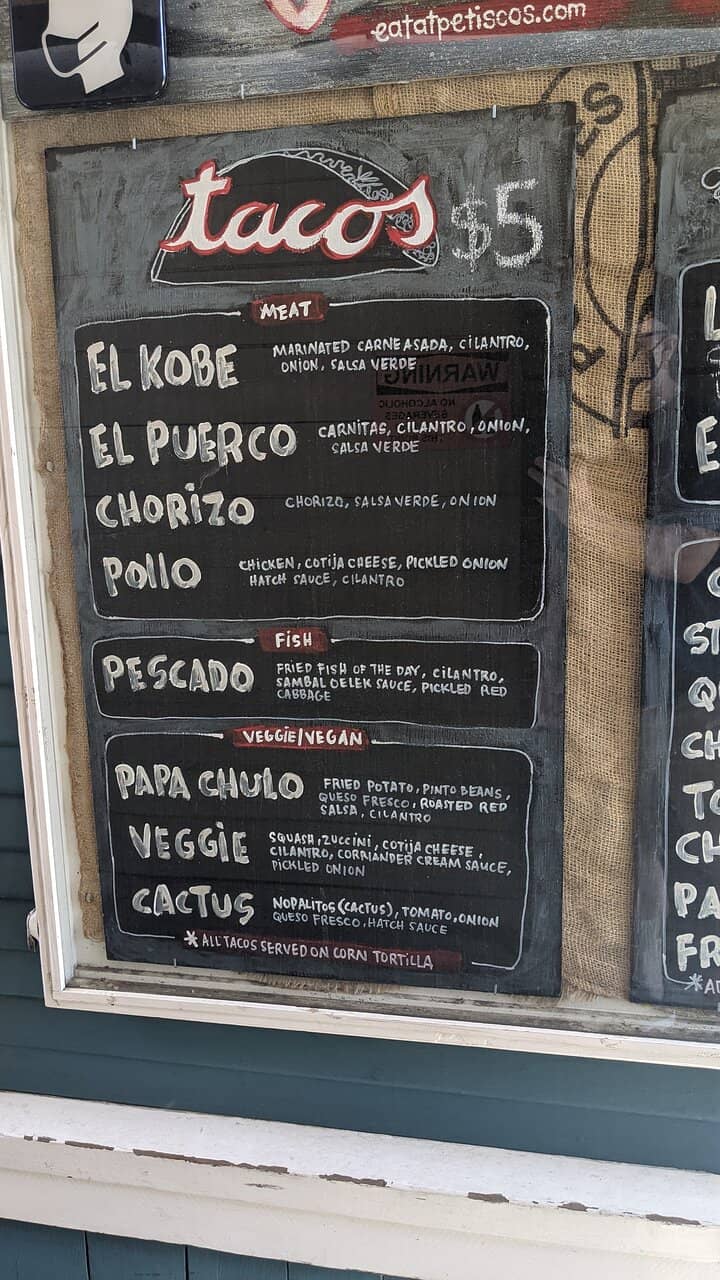 eatatpetiscos.com
tacos $5
MEAT
EL KOBE
MARINATED CARNE ASADA, CILANTRO,
ONION, SALSA VERDE
EL PUERCO
CARNITAS, CILANTRO, ONION,
SALSA VERDE
CHORIZO
CHORIZO, SALSA VERDE, ONION
POLLO
CHICKEN, COTIJA CHEESE, PICKLED ONION
HATCH SAUCE, CILANTRO
FISH
PESCADO
FRIED FISH OF THE DAY, CILANTRO,
SAMBAL OELEK SAUCE, PICKLED RED
CABBAGE
VEGGIE/VEGAN
PAPA CHULO
FRIED POTATO, PINTO BEANS,
QUESO FRESCO, ROASTED RED
SALSA, CILANTRO
VEGGIE
SQUASH, ZUCCINI, COTIJA CHEESE,
CILANTRO, CORRIANDER CREAM SAUCE,
PICKLED ONION
CACTUS
NOPALITOS (CACTUS), TOMATO, ONION
QUESO FRESCO, HATCH SAUCE
*ALL TACOS SERVED ON CORN TORTILLA
WARNING
NO ALCOHOLIC
BEVERAGES